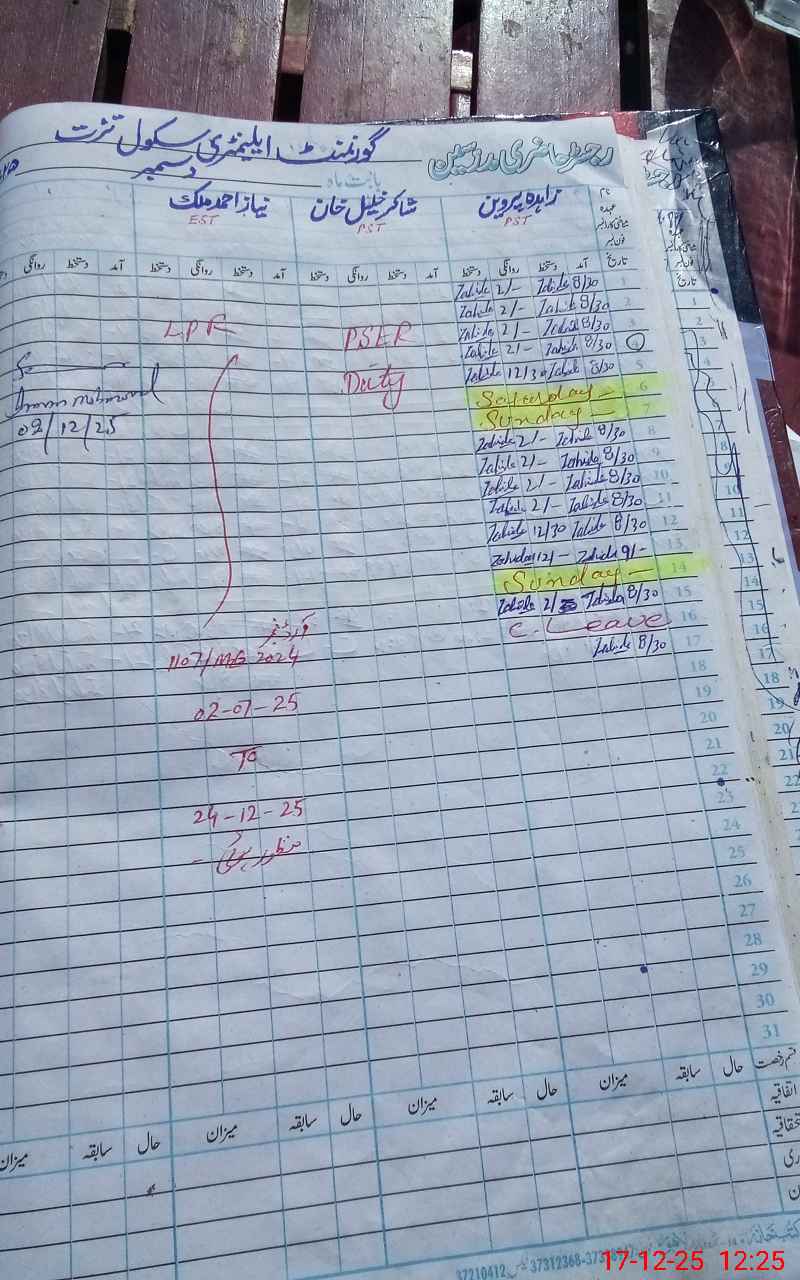 رجسٹر حاضری مدرسین
گورنمنٹ ایلیمنٹری سکول
بابت ماہ دسمبر
نام زاہدہ پروین شاکر خلیل خان نیاز احمد ملک
عہدہ PST PST EST
تاریخ آمد دستخط روانگی دستخط آمد دستخط روانگی دستخط آمد دستخط روانگی دستخط آمد دستخط روانگی
1 Zahida 8/30 Zahida 2/-
2 Zahida 8/30 Zahida 2/-
3 Zahida 8/30 Zahida 2/-
4 Zahida 8/30 Zahida 2/-
5 Zahida 8/30 Zahida 12/30
6 Saturday -
7 Sunday -
8 Zahida 8/30 Zahida 2/-
9 Zahida 8/30 Zahida 2/-
10 Zahida 8/30 Zahida 2/-
11 Zahida 8/30 Zahida 2/-
12 Zahida 8/30 Zahida 12/30
13 Zahida 9/- Zahida 12/-
14 Sunday -
15 Zahida 8/30 Zahida 2/
16 C. Leave
17 Zahida 8/30
18
19
20
21
22
23
24
25
26
27
28
29
30
31
PSER
Duty
LPR
1107/MB 2024
02-07-25
To
24-12-25
منظور ہوئی -
02/12/25
قسم رخصت حال سابقہ میزان حال سابقہ میزان حال سابقہ میزان حال سابقہ میزان
اتفاقیہ
37210412
17-12-25 12:25